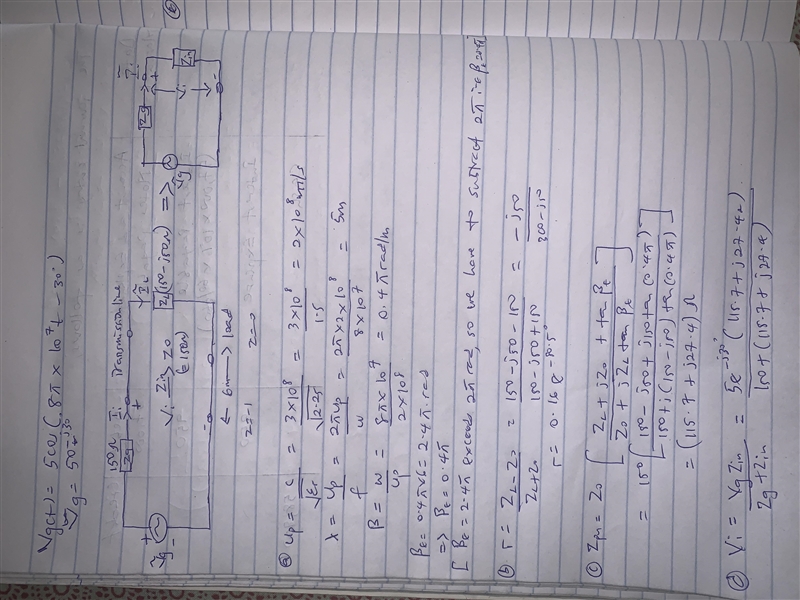 Vg(t) = 5cos(8π × 10⁷t - 30°)
Ṽg = 5e^-j30°
150Ω Transmission line
Zg Ĩi ĨL
Ṽg + - Vi Zin Z0 (150Ω) ZL (150-j50)Ω =>
← 6m → load
z=-l z=0
Zg Ĩi + Vi - Zin Ṽg
(a) up = c/√εr = 3×10⁸/√2.25 = 3×10⁸/1.5 = 2×10⁸ m/s
λ = up/f = 2πup/ω = 2π×2×10⁸/8×10⁷ = 5m
β = ω/up = 8π×10⁷/2×10⁸ = 0.4π rad/m
βℓ = 0.4π×6 = 2.4π rad
=> βℓ = 0.4π
[βℓ = 2.4π exceeds 2π rad, so we have to subtract 2π
(b) Γ = ZL-Z0/ZL+Z0 = 150-j50-150/150-j50+150 = -j50/300-j50
Γ = 0.16 e^-80.5°
(c) Zin = Z0 [ZL+jZ0+tan βℓ/Z0+jZL tan βℓ]
= 150 [150-j50+j150 tan(0.4π)/150+j(150-j50) tan(0.4π)]
= (115.7+j27.4) Ω
(d) Vi = Vg Zin/Zg+Zin = 5e^-j30° (115.7+j27.42)/150+(115.7+j27.4)